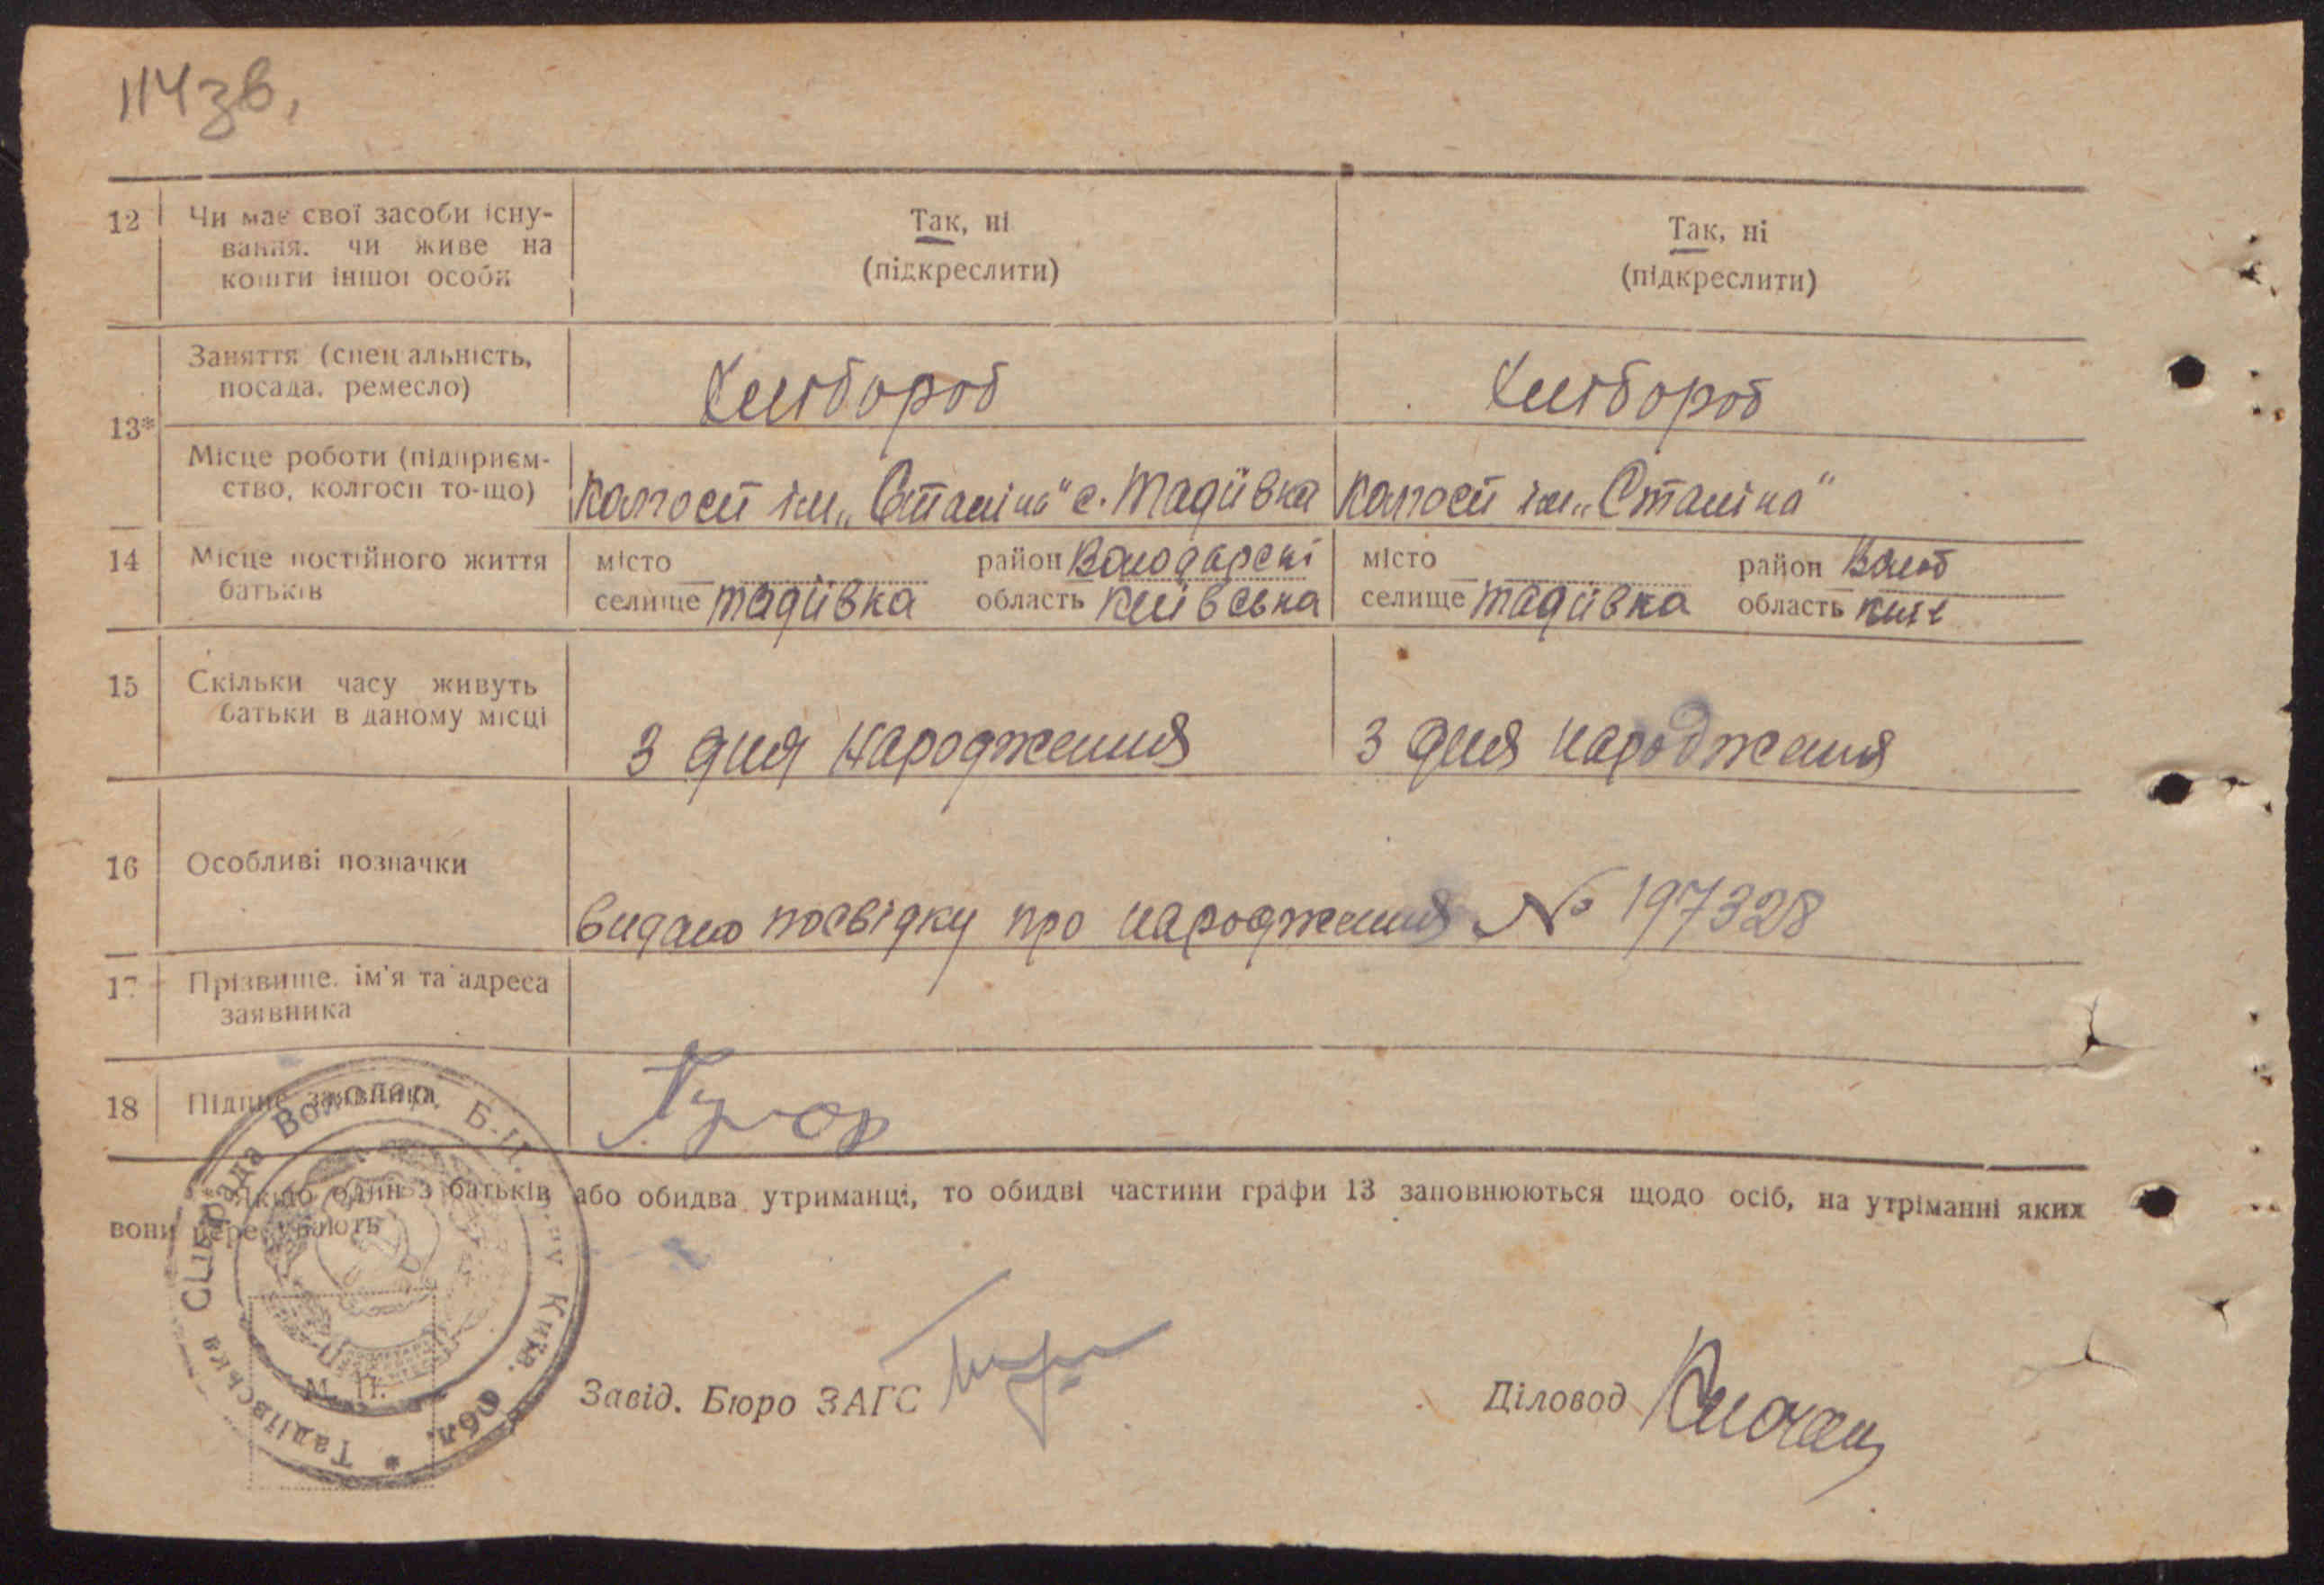 114 зв,
12 Чи має свої засоби існу-
вання. чи живе на
кошти іншої особи
Так, ні
(підкреслити)
Так, ні
(підкреслити)
13*
Заняття (спеціальність,
посада. ремесло)
Хлібороб
Хлібороб
Місце роботи (підприєм-
ство, колгосп то-що)
Колгосп ім „Сталіна" с. Тадіївка
Колгосп ім „Сталіна"
14 Місце постійного життя
батьків
місто район Володарскі
селище Тадіївка область Київська
місто район Волод
селище Тадіївка область Київ
15 Скільки часу живуть
батьки в даному місці
З дня народження
З дня народження
16 Особливі позначки
Видано посвідку про народження № 197328
17 Прізвище. ім'я та адреса
заявника
18 Підпис заявника
* Якщо один з батьків або обидва утриманці, то обидві частини графи 13 заповнюються щодо осіб, на утріманні яких
вони перебувають
Тадіївська Сільрада Володар. Б-Ц. Київ. Обл. *
М. П.
Завід. Бюро ЗАГС
Діловод